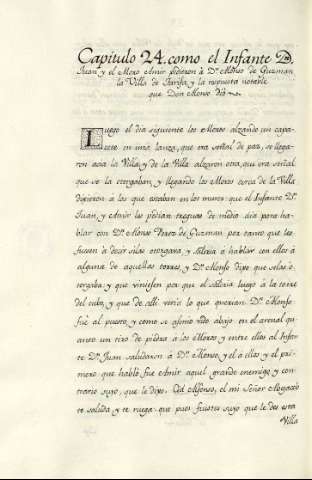 Capitulo 24. como el Infante D.
Juan, y el Moro Amir pidieron à Dn. Alonso de Guzman
la Villa de Tarifa, y la repuesta notable
que Don Alonso dió
Luego el dia siguiente los Moros alzando un capa-
cete en una lanza, que era señal de paz, se llega-
ron acia la Villa, y de la Villa alzaron otra, que era señal
que se la otorgaban, y llegando los Moros cerca de la Villa
dixeron à los que estaban en los muros: que el Infante Dn.
Juan, y Amir les pedian treguas de medio dia para ha-
blar con Dn. Alonso Perez de Guzman por tanto que les
fuesen à decir si las otorgava, y saldria à hablar con ellos à
alguna de aquellas torres, y Dn. Alonso dijo que se las o-
torgaba, y que viniesen por que el saldria luego à la torre
del cubo, y que de alli veria lo que querian. Dn. Alonso
fué al puesto, y como se asomó vido abajo en el arenal qu-
anto un tiro de piedra à los Moros, y entre ellos al Infan-
te Dn. Juan saludaron à Dn. Alonso, y el à ellos, y el pri-
mero que habló fue Amir aquel grande enemigo, y con-
trario suyo, que le dijo. Cid Alfonso, el mi Señor
te saluda, y te ruega que pues fuistes suyo que le des esta
Villa